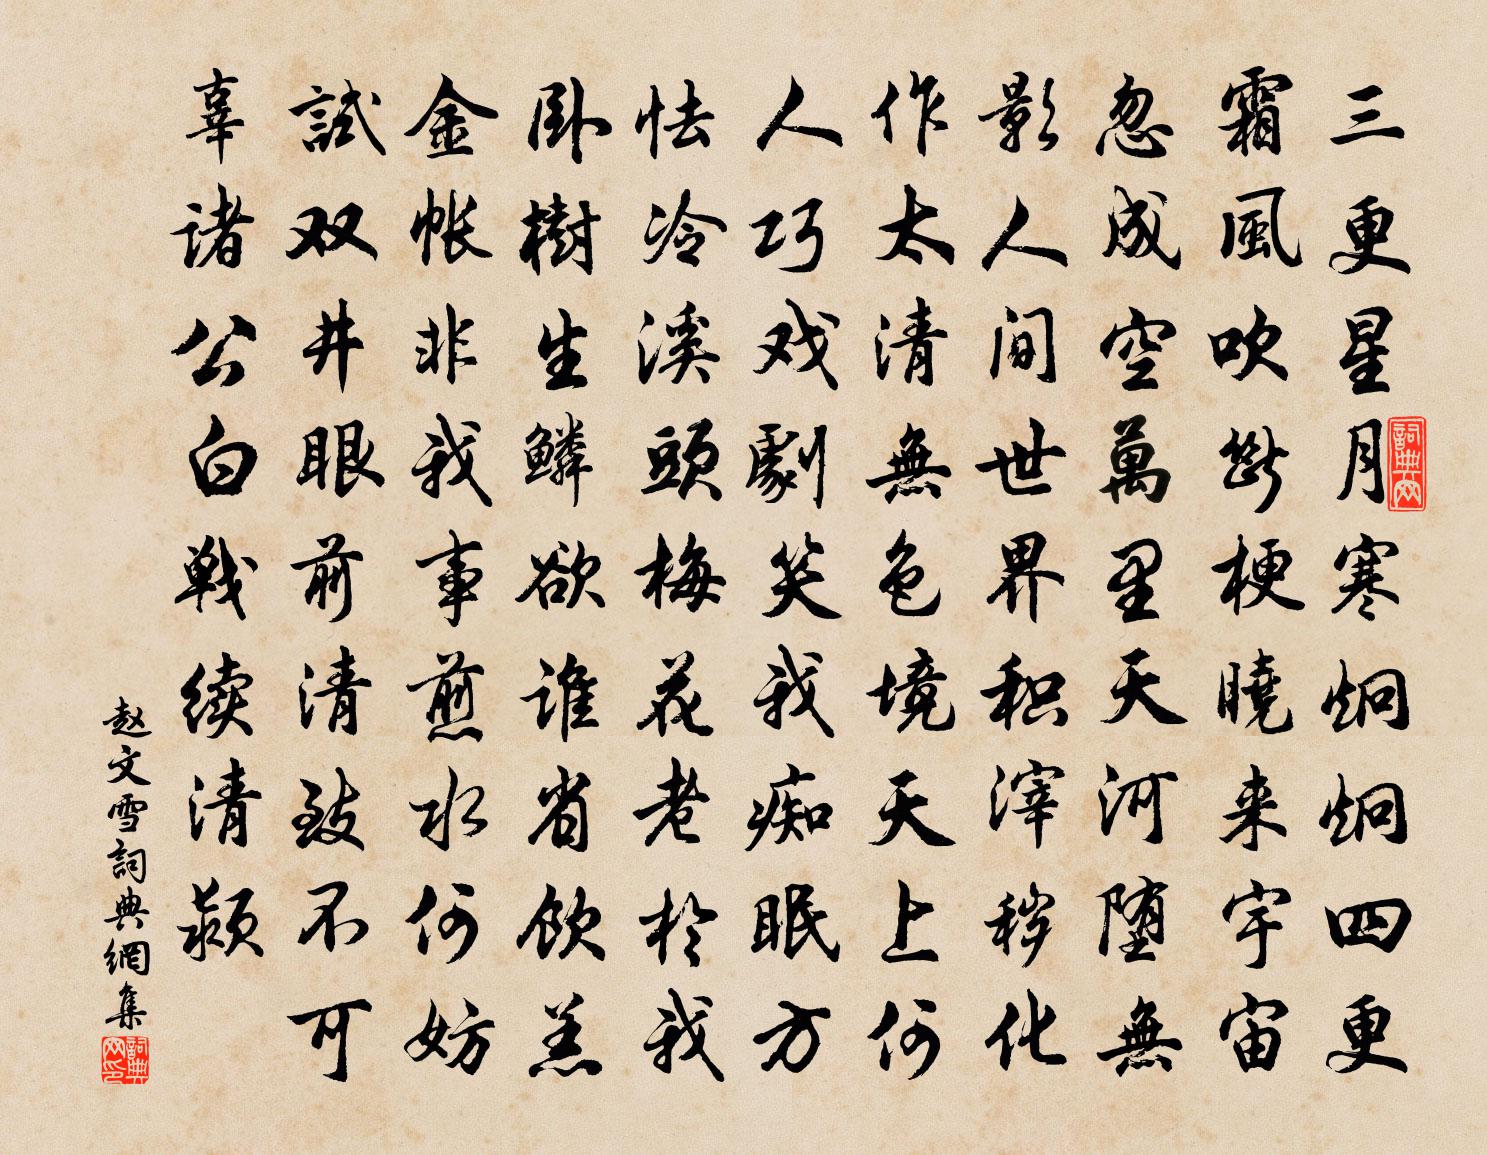 三更星月寒炯炯四更
霜風吹断梗曉来宇宙
忽成空萬里天河堕無
影人間世界积滓秽化
作太清無色境天上何
人巧戏劇笑我痴眠方
怯冷溪頭梅花老於我
卧樹生鳞欲谁省飲羔
金帐非我事煎水何妨
試双井眼前清致不可
辜诸公白戦续清颍
赵文雪詞典網集
詞典网
詞典网印